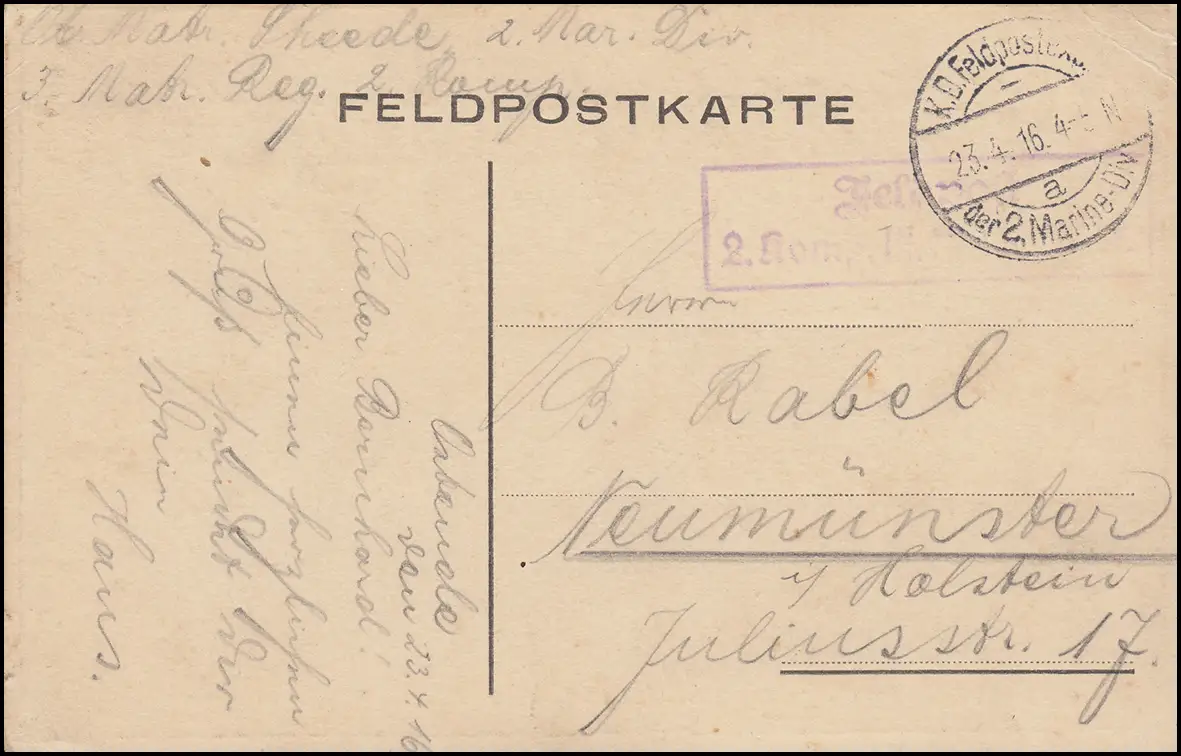 Ob. Matr. Sheede, 2. Mar. Div.
3. Matr. Reg. 2. Komp.
FELDPOSTKARTE
K.D. Feldpostex
23.4.16. 4-5 N
a
der 2. Marine-Div
2. Komp.
Herrn
B. Rabel
Neumünster
i/ Holstein
Juliusstr. 17.
den 23.4.16
Lieber Bernhard!
herzlichen
Gruß sendet Dir
Dein
Hans.